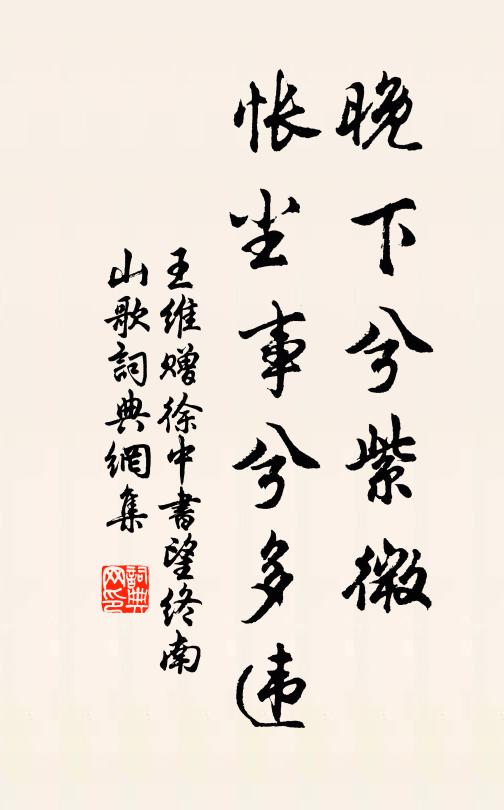 晚下兮紫微
悵尘事兮多违
王维赠徐中書望终南
山歌詞典網集
詞典网印